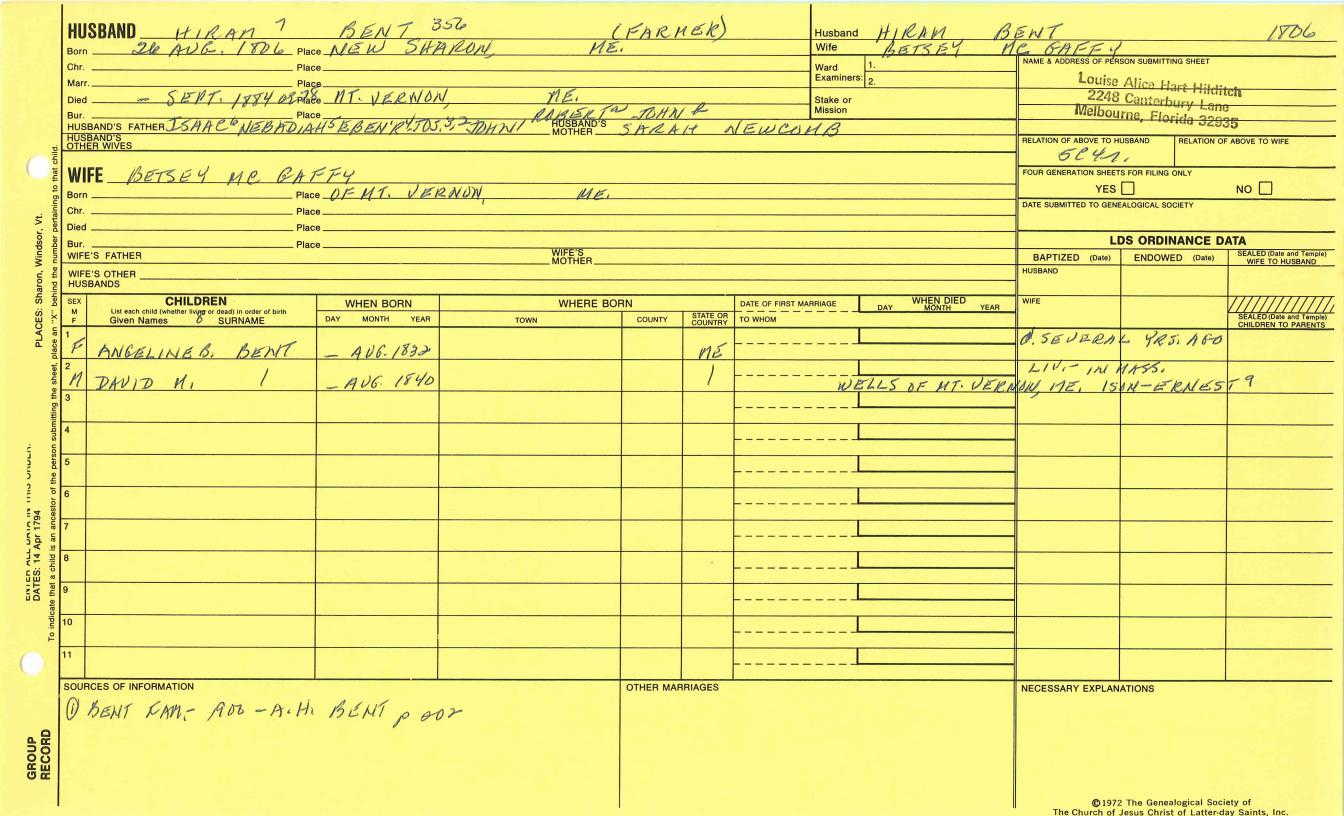 HUSBAND HIRAM 7 BENT 356 (FARMER)
Born 26 AUG. 1806 Place NEW SHARON, ME.
Chr. Place
Marr. Place
Died - SEPT. 1884 Place MT. VERNON, ME.
Bur. Place
HUSBAND'S FATHER ISAAC6 NEBADIAH5 EBEN'R4 JOS.3,2 JOHN1 ROBERT JOHN HUSBAND'S MOTHER SARAH NEWCOMB
HUSBAND'S OTHER WIVES
Husband HIRAM BENT 1806
Wife BETSEY MC GAFFY
Ward Examiners: 1.
2.
Stake or Mission
NAME & ADDRESS OF PERSON SUBMITTING SHEET
Louise Alice Hart Hilditch
2248 Canterbury Lane
Melbourne, Florida 32935
RELATION OF ABOVE TO HUSBAND RELATION OF ABOVE TO WIFE
FOUR GENERATION SHEETS FOR FILING ONLY
YES NO
DATE SUBMITTED TO GENEALOGICAL SOCIETY
WIFE BETSEY MC GAFFY
Born Place OF MT. VERNON, ME.
Chr. Place
Died Place
Bur. Place
WIFE'S FATHER WIFE'S MOTHER
WIFE'S OTHER HUSBANDS
LDS ORDINANCE DATA
BAPTIZED (Date) ENDOWED (Date) SEALED (Date and Temple) WIFE TO HUSBAND
HUSBAND
WIFE
SEALED (Date and Temple) CHILDREN TO PARENTS
SEX M F
CHILDREN
List each child (whether living or dead) in order of birth
Given Names 8 SURNAME
WHEN BORN
DAY MONTH YEAR
WHERE BORN
TOWN COUNTY STATE OR COUNTRY
DATE OF FIRST MARRIAGE
TO WHOM
WHEN DIED
DAY MONTH YEAR
1 F ANGELINE B. BENT - AUG. 1832 ME d. SEVERAL YRS. AGO
2 M DAVID M. - AUG. 1840 LIV. - IN MASS.
WELLS OF MT. VERNON, ME. 1SON-ERNEST 9
3
4
5
6
7
8
9
10
11
SOURCES OF INFORMATION
① BENT FAM. - 900 - A.H. BENT
OTHER MARRIAGES
NECESSARY EXPLANATIONS
©1972 The Genealogical Society of
The Church of Jesus Christ of Latter-day Saints, Inc.
PLACES: Sharon, Windsor, Vt.
ENTER ALL DATA IN THIS ORDER:
DATES: 14 Apr 1794
To indicate that a child is an ancestor of the person submitting the sheet, place an "X" behind the number pertaining to that child.
GROUP RECORD